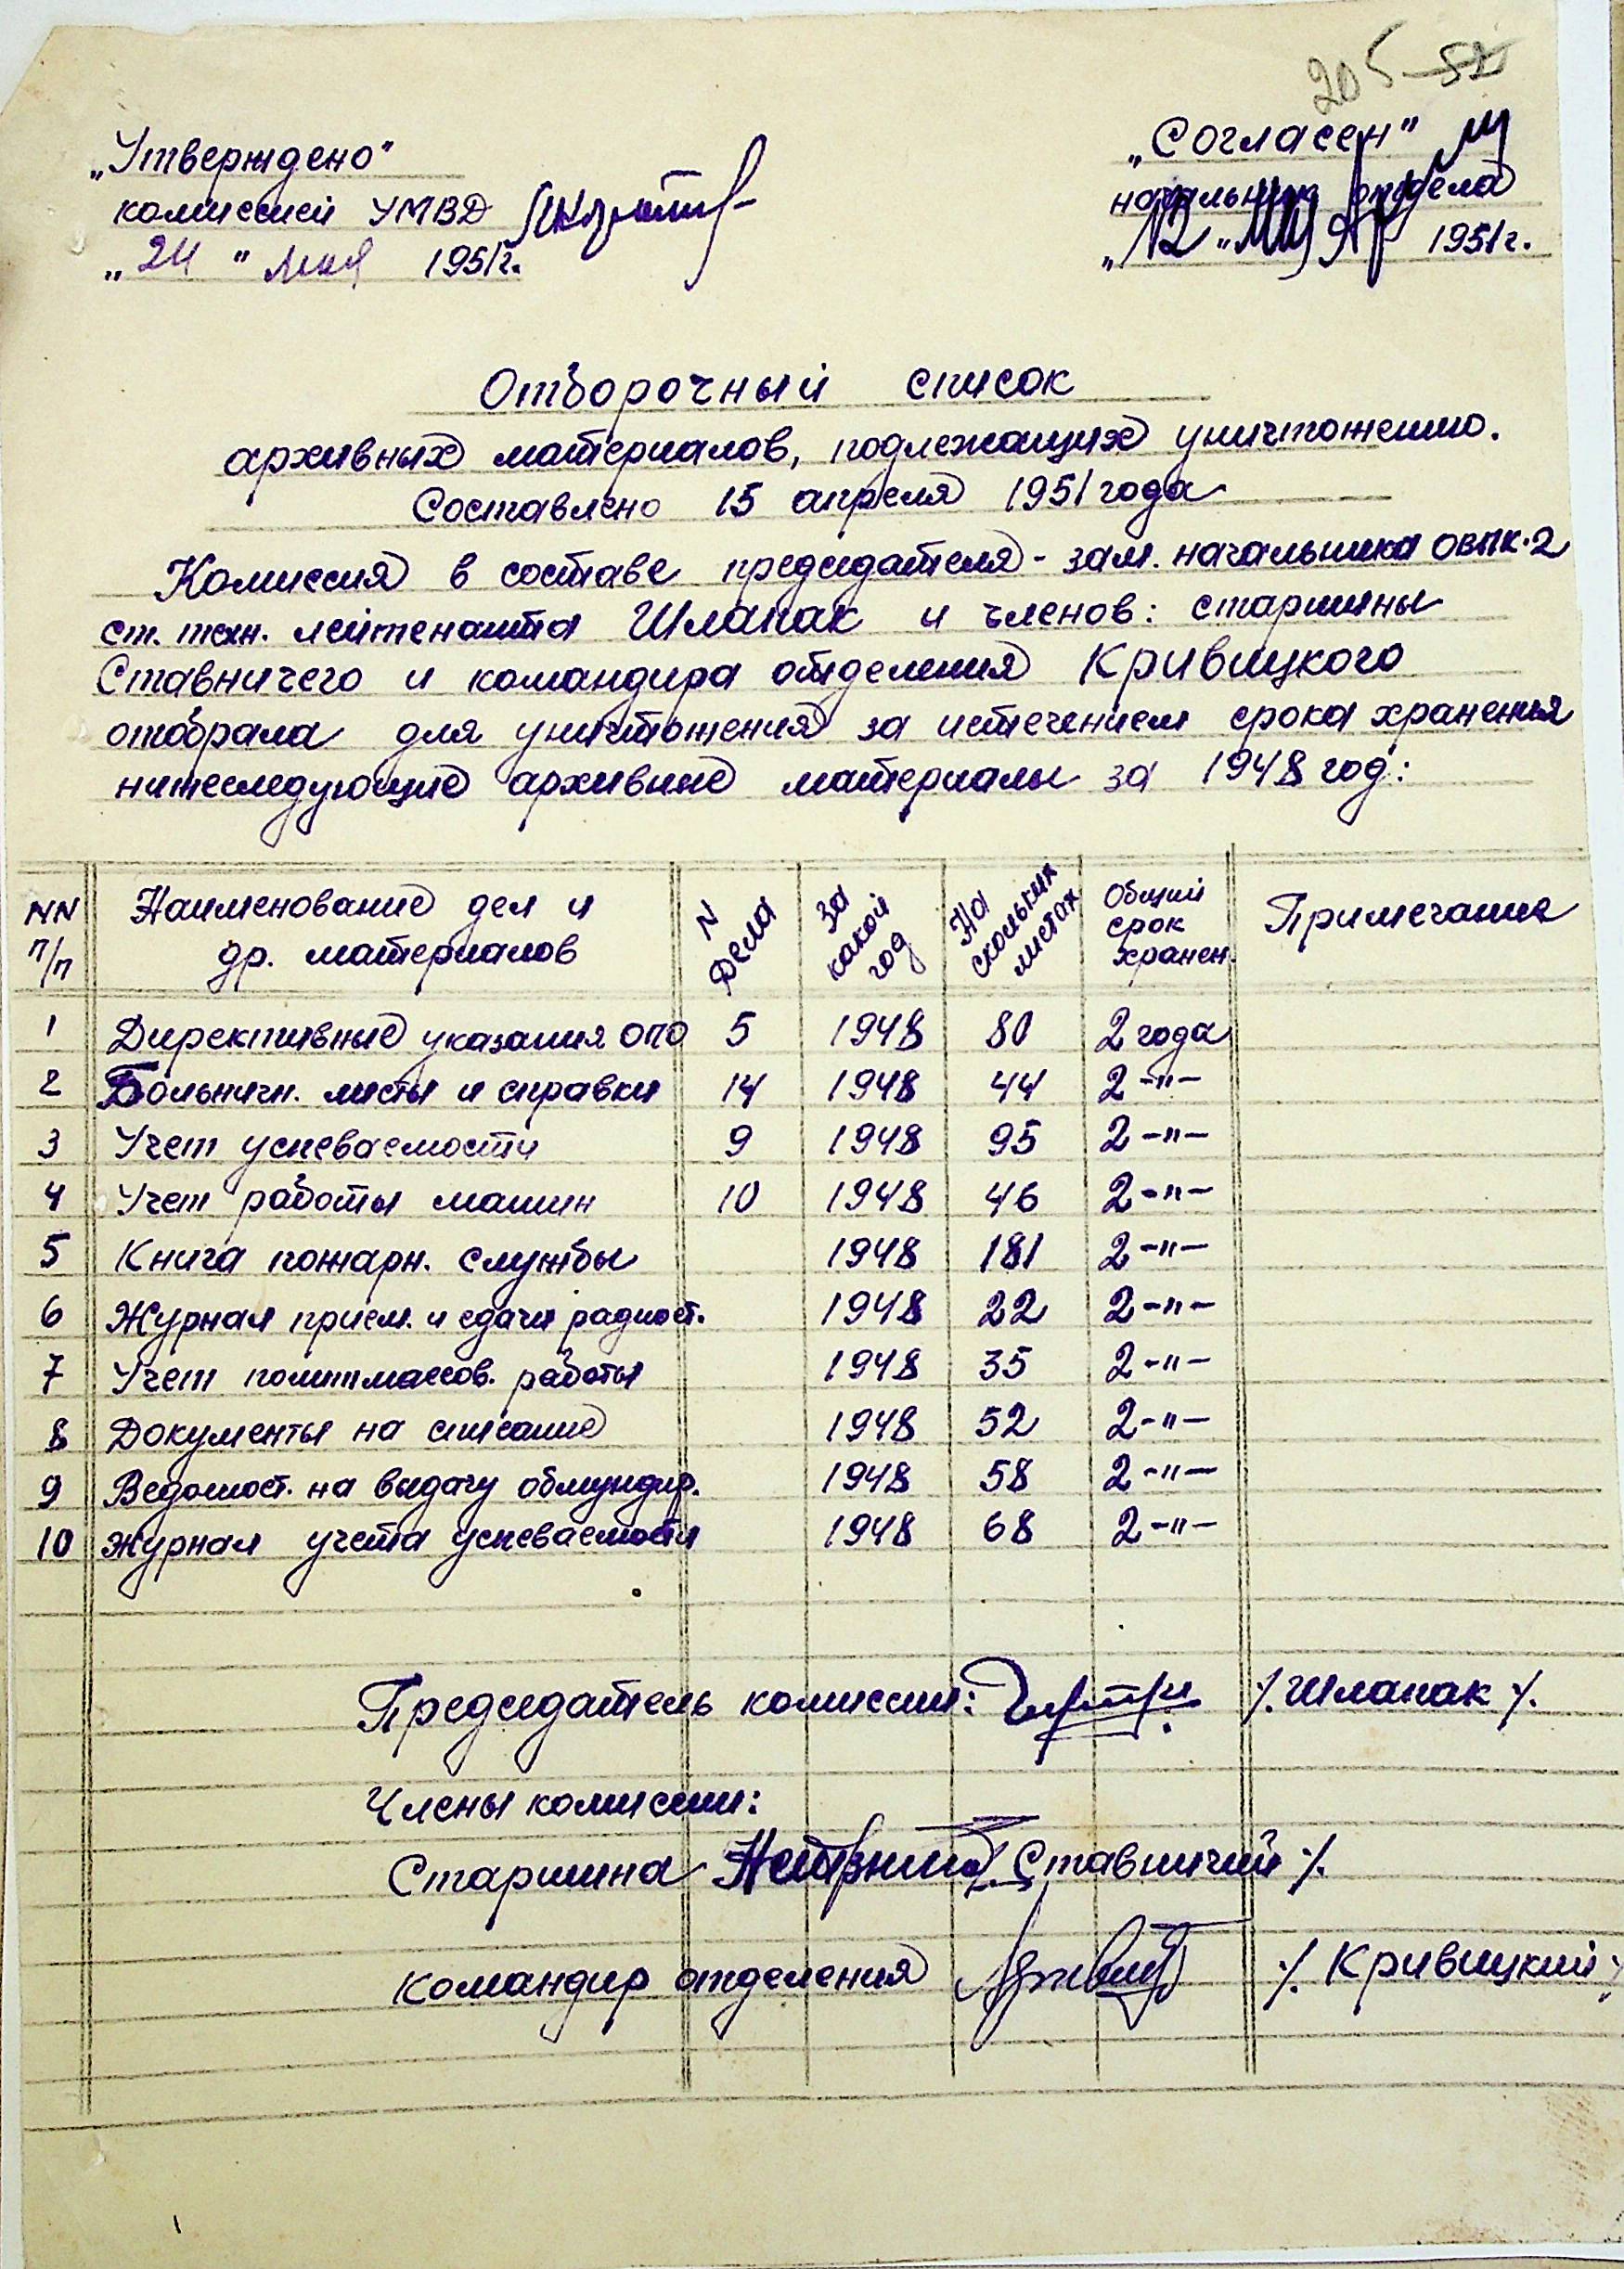 205
„Утверждено"
комиссией УМВД
„24" мая 1951г.
„Согласен"
начальник отдела
„12" 1951г.
Отборочный список
архивных материалов, подлежащих уничтожению.
Составлено 15 апреля 1951 года
Комиссия в составе председателя - зам. начальника ОВПК-2
ст. техн. лейтенанта Шлапак и членов: старшины
Ставничего и командира отделения Кривицкого
отобрала для уничтожения за истечением срока хранения
нижеследующие архивные материалы за 1948 год:
NN п/п Наименование дел и др. материалов N дела За какой год На скольких листах Общий срок хранен. Примечание
1 Директивные указания ОПО 5 1948 80 2 года
2 Больничн. листы и справки 14 1948 44 2 -"-
3 Учет успеваемости 9 1948 95 2 -"-
4 Учет работы машин 10 1948 46 2 -"-
5 Книга пожарн. службы 1948 181 2 -"-
6 Журнал прием. и сдачи радиост. 1948 22 2 -"-
7 Учет политмассов. работы 1948 35 2 -"-
8 Документы на списание 1948 52 2 -"-
9 Ведомост. на выдачу обмундир. 1948 58 2 -"-
10 Журнал учета успеваемости 1948 68 2 -"-
Председатель комиссии: /.Шлапак/.
Члены комиссии:
Старшина /.Ставничий/.
Командир отделения /.Кривицкий/